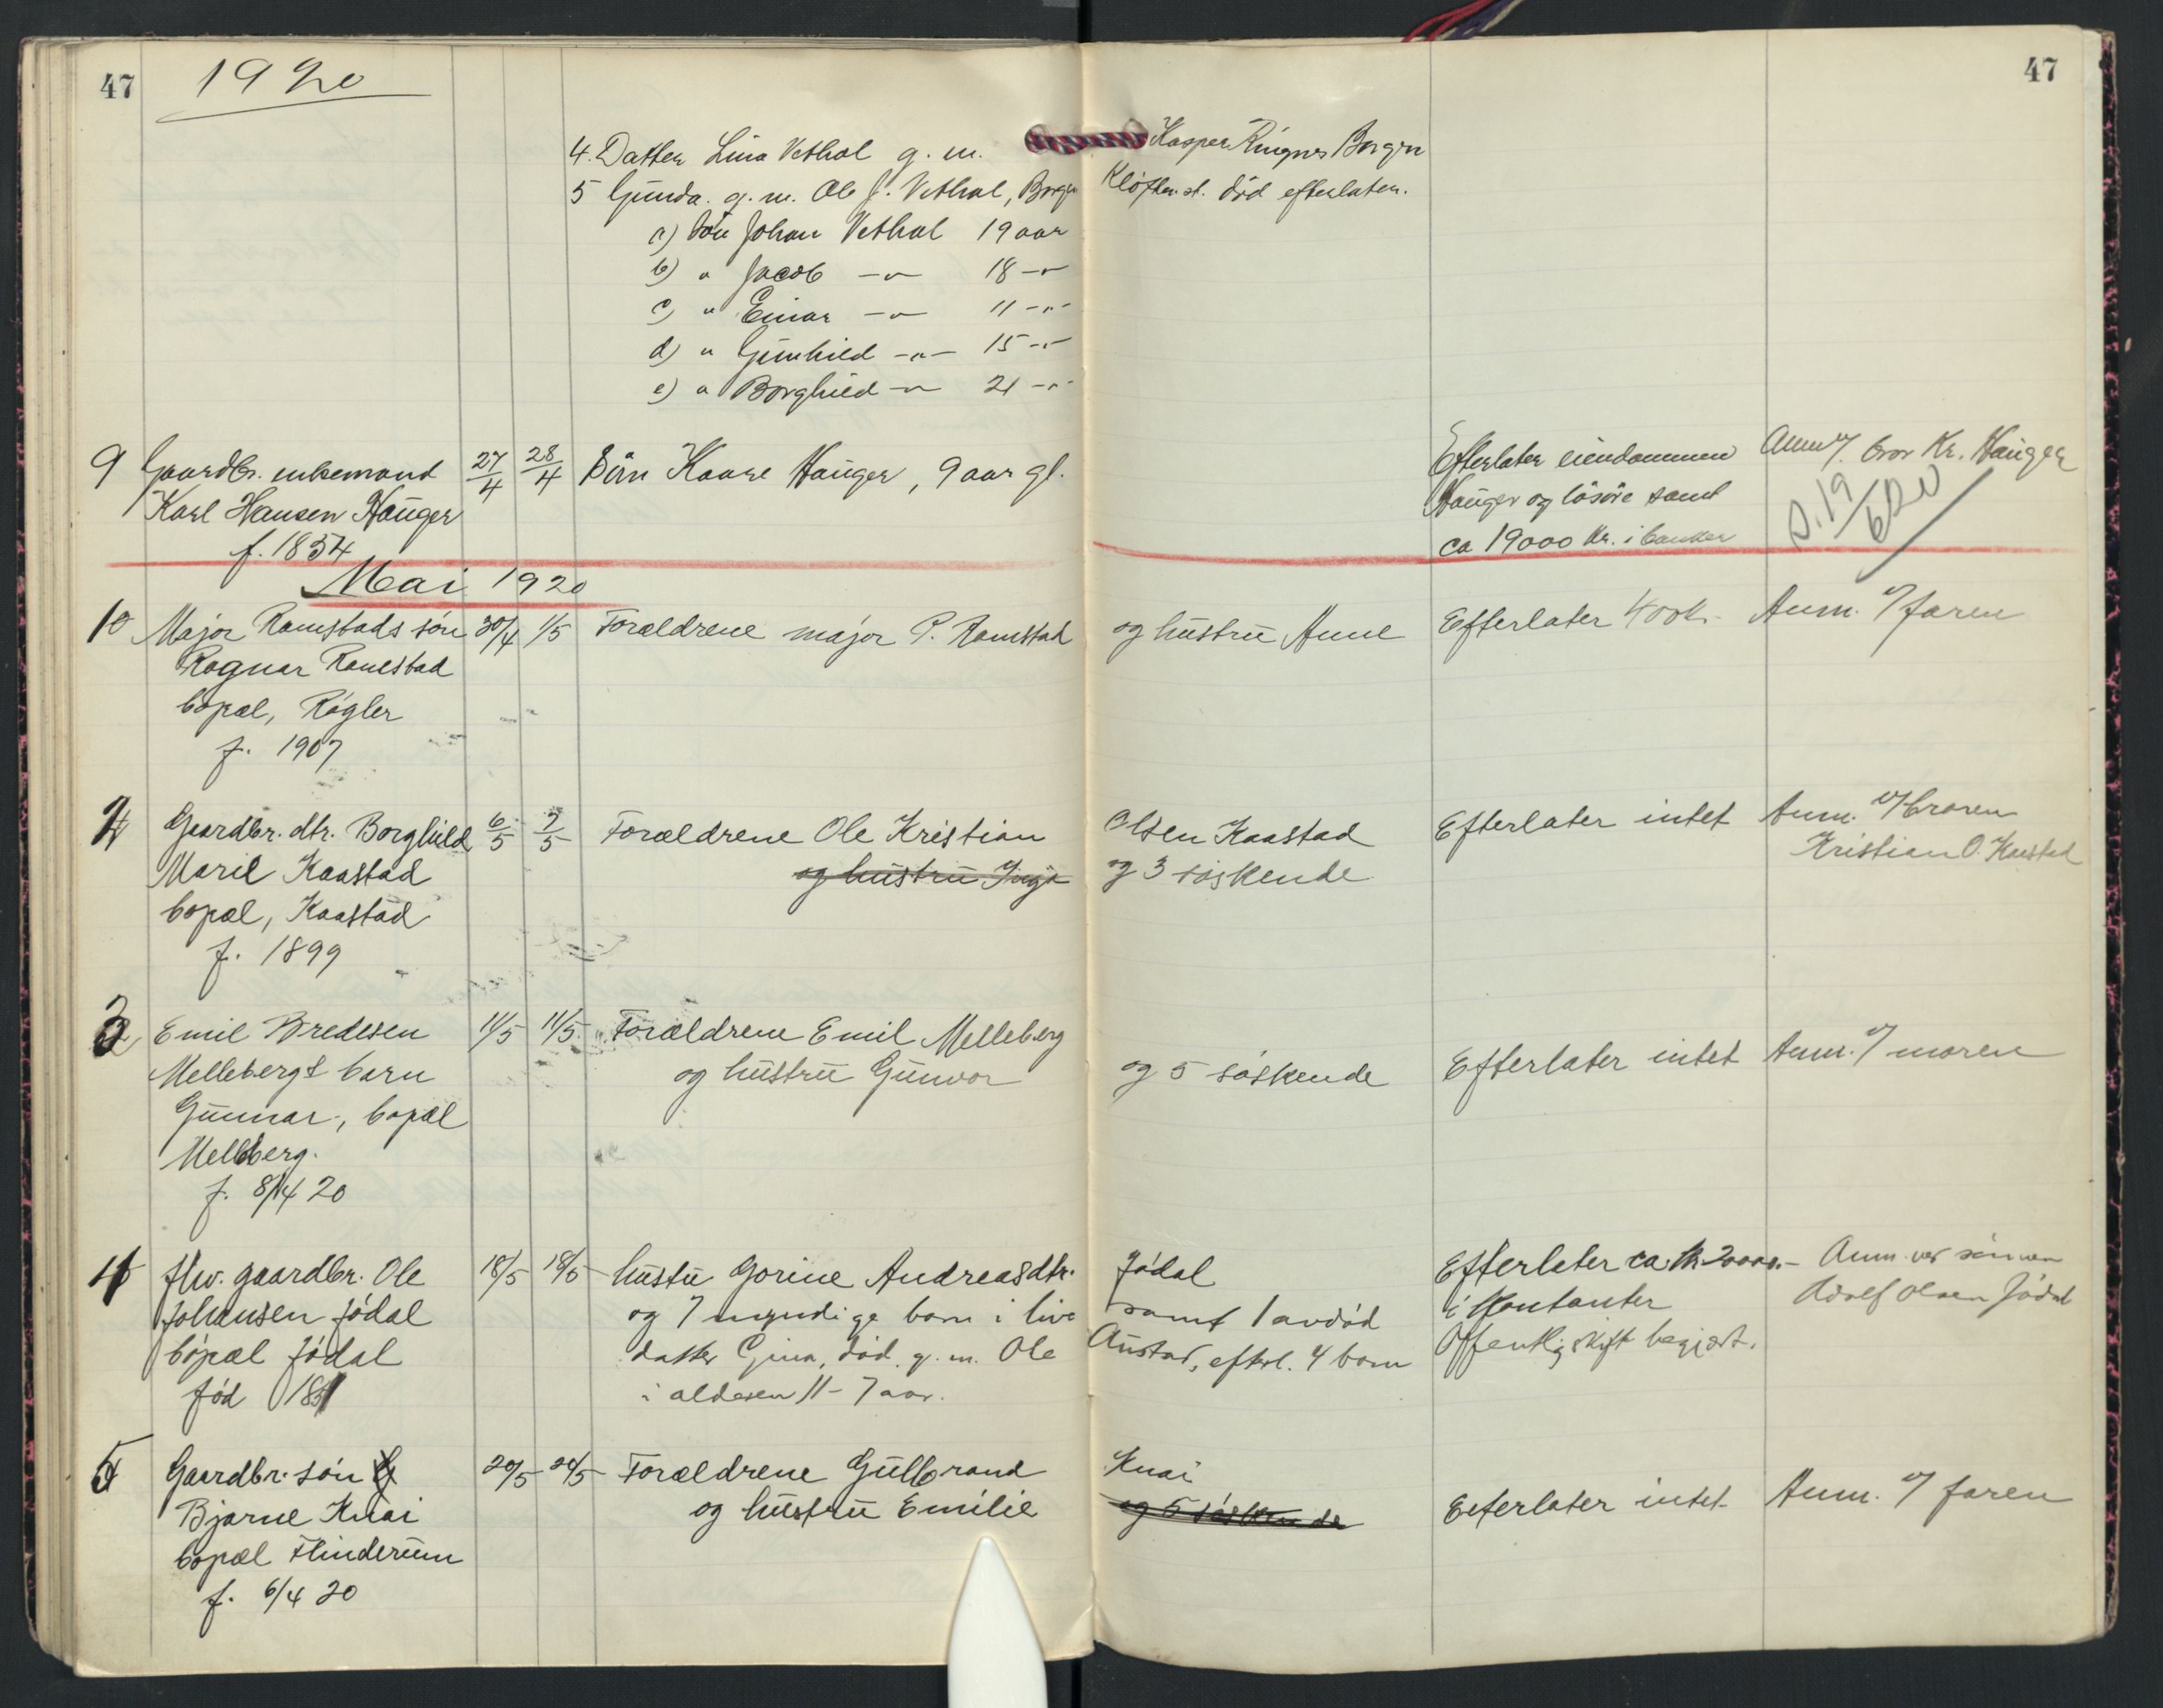 47 1920 47
4. Datter Lina Vethal g. m. Kasper Ringnes Borgen
5 Gunda. g. m. Ole J. Vethal, Borgen Kløften st. död efterlater.
a) Sön Johan Vethal 19 aar
b) " Jacob -"- 18 -"-
c) " Einar -"- 11 -"-
d) " Gunhild -"- 15 -"-
e) " Borghild -"- 21 -"-
9 Gaardbr. enkemand 27/4 28/4 Sön Kaare Hauger, 9 aar gl. Efterlater eiendommen Anm v/ bror Kr. Hauger
Karl Hansen Hauger Hauger og løsöre samt
f. 1854 ca 19000 Kr. i banken
Mai 1920
10 Major Ramstads sön 30/4 1/5 Forældrene major P. Ramstad og hustru Anne Efterlater 400 kr. Anm. v/ faren
Ragnar Ramstad
bopæl, Røgler
f. 1907
2 Gaardbr. dtr. Borghild 6/5 7/5 Forældrene Ole Kristian Olsen Kaastad Efterlater intet Anm. v/ broren
Marie Kaastad og hustru Inga og 3 søskende Kristian O. Kaastad
bopæl, Kaastad
f. 1899
3 Emil Bredesen 11/5 11/5 Forældrene Emil Melleberg Efterlater intet Anm. v/ moren
Mellebergs barn og hustru Gunvor og 5 søskende
Gunnar, bopæl
Melleberg.
f. 8/4 20
4 fhv. gaardbr. Ole 18/5 18/5 hustu Gorine Andreasdtr. Jödal Efterlater ca. kr 20000.- Anm. ved sönnen
Johansen Jödal og 7 myndige barn i live samt 1 avdöd i Kontanter Adolf Olsen Jödal
bopæl Jödal datter Gina, död. g. m. Ole Austad, efterl. 4 barn Offentlig skift begjært.
Född 1831 i alderen 11 - 7 aar.
5 Gaardbr. sön G 20/5 20/5 Forældrene Gulbrand Knai Eeterlater intet Anm. v/ faren
Bjarne Knai og hustru Emilie og 5 søskende
bopæl Flinderum
f. 6/4 20